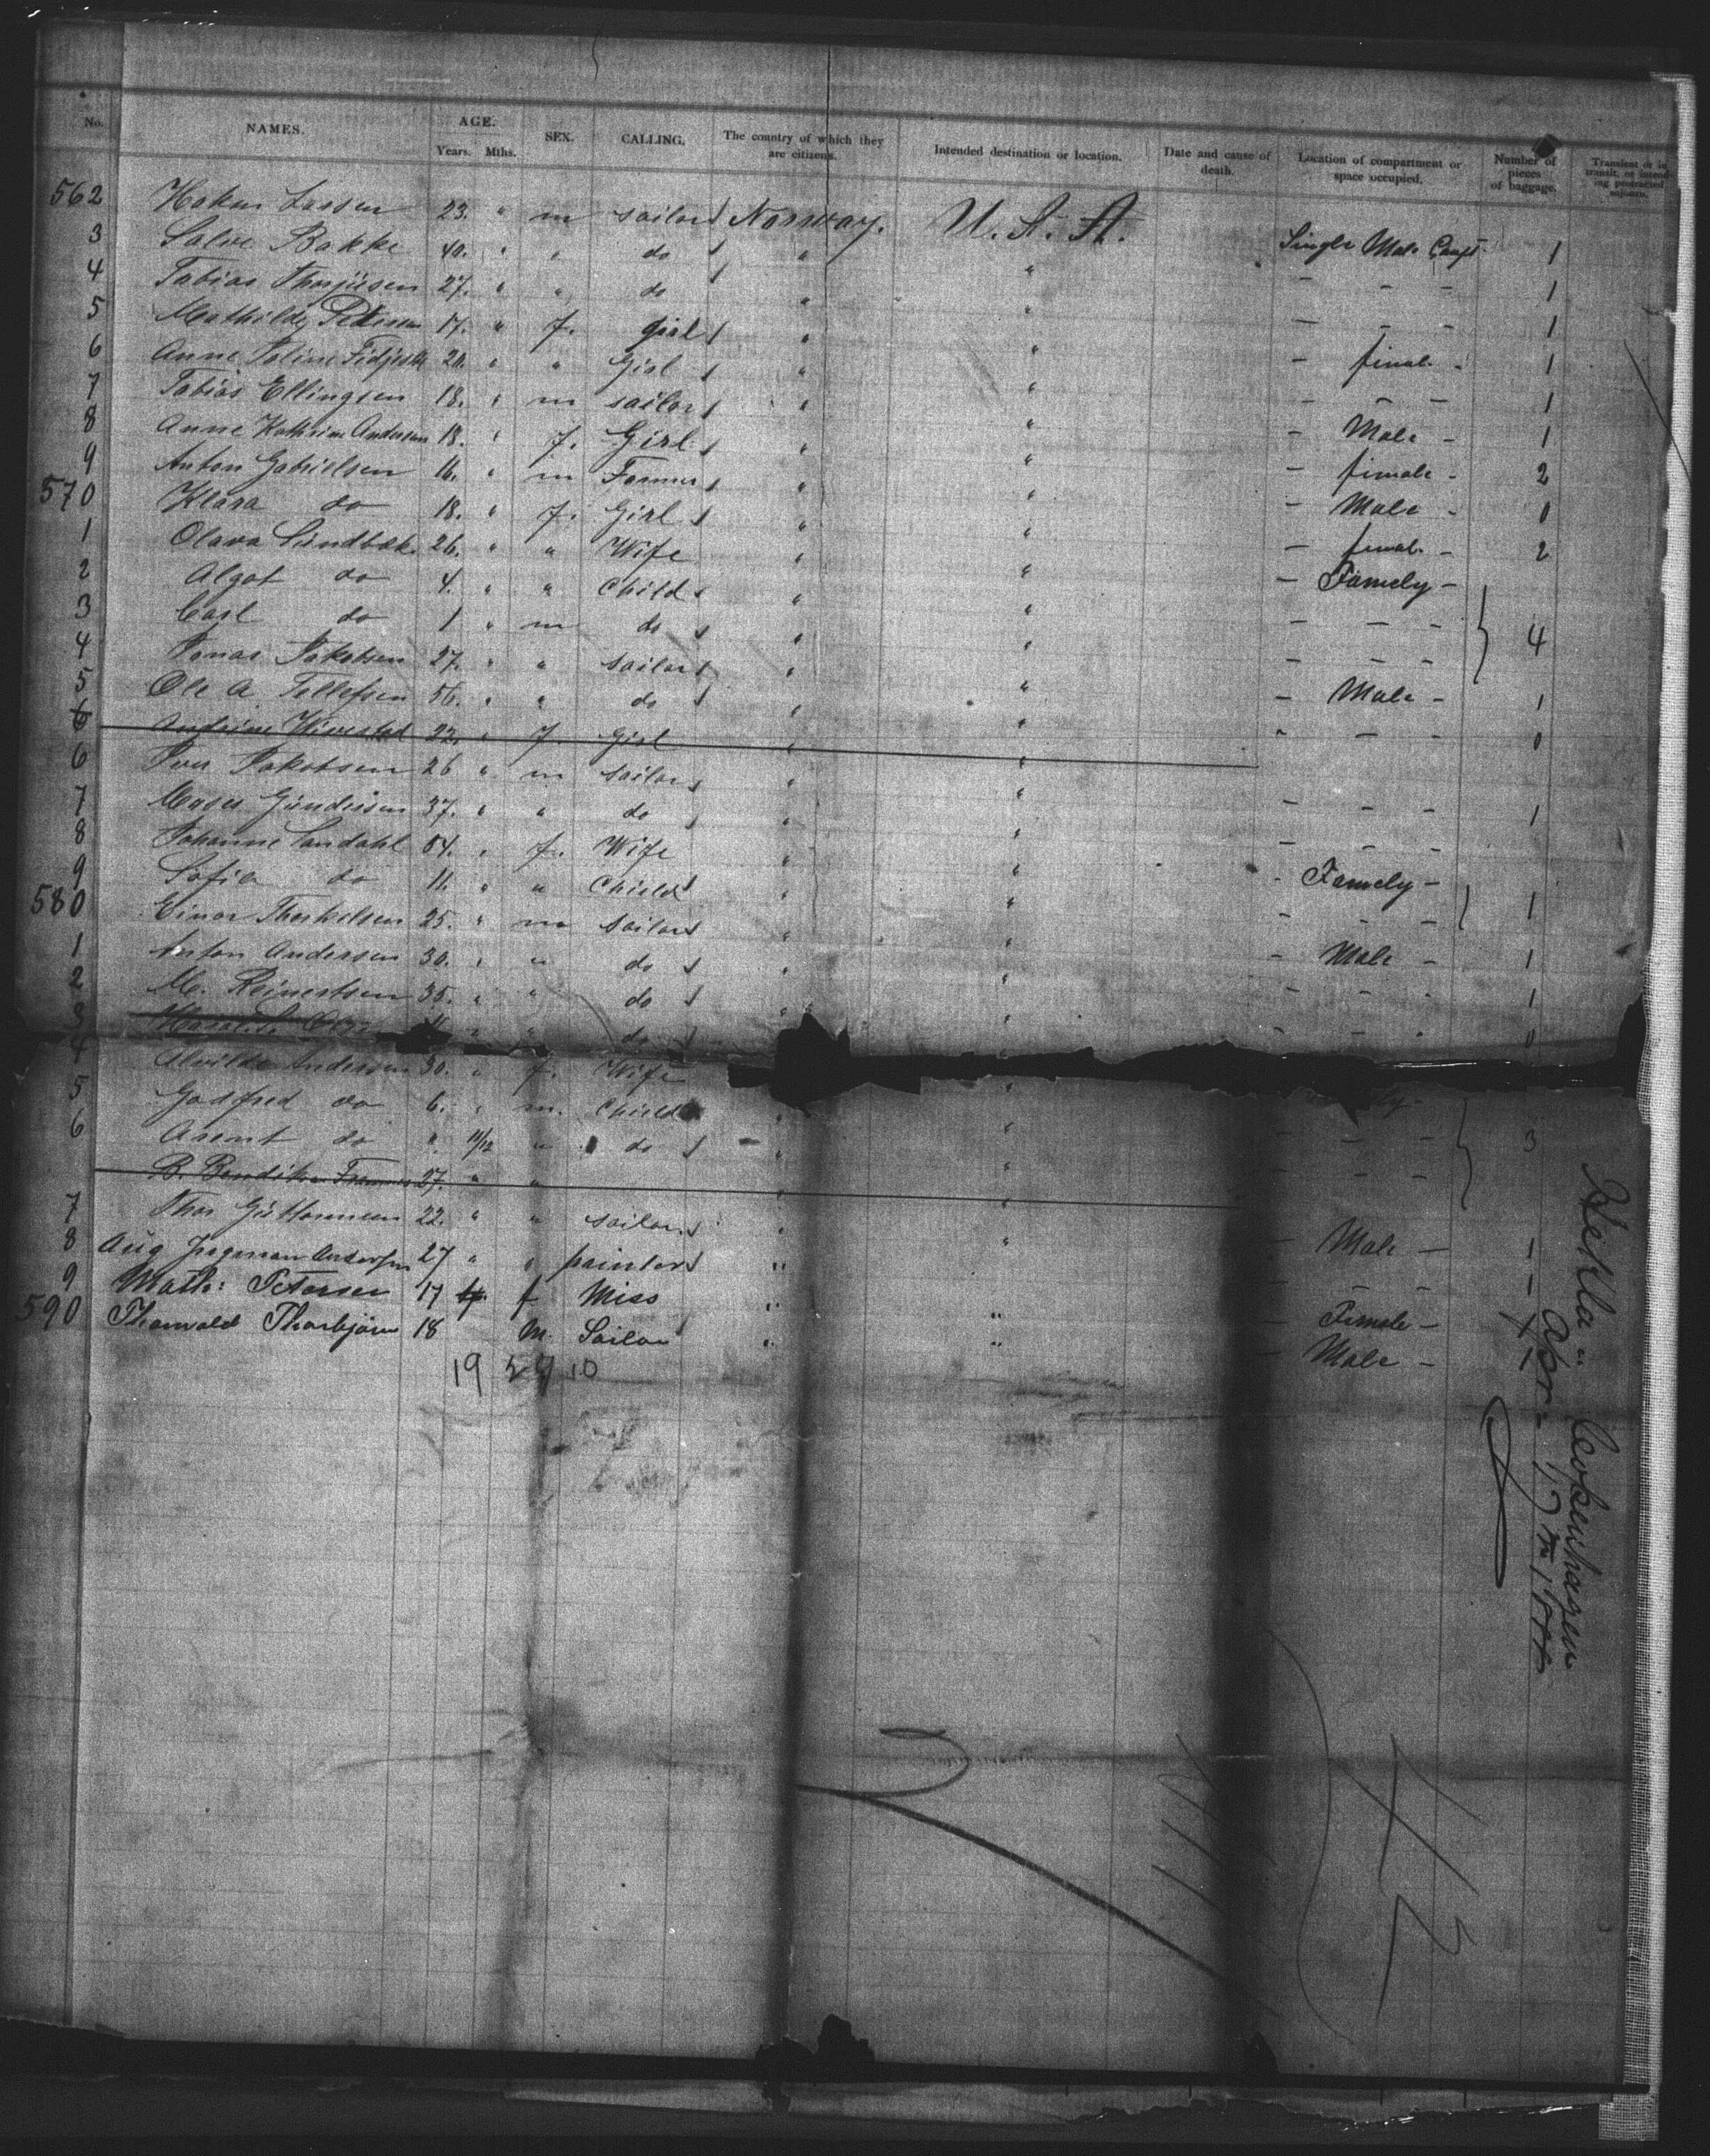 No. NAMES. AGE. Years. Mths. SEX. CALLING. The country of which they are citizens. Intended destination or location. Date and cause of death. Location of compartment or space occupied. Number of pieces of baggage. Transient or in transit, or intending protracted sojourn.
562 Hakon Larsen 23. " m sailor Norway. U. S. A. Single Male Compt. 1
3 Salve Bakke 40. " " do " " - - - 1
4 Tobias 27. " " do " " - - - 1
5 Mathilde Petersen 17. " f. girl " " - female - 1
6 Anne 20. " " Girl " " - - - 1
7 Tobias Ellingsen 18. " m sailor " " - Male - 1
8 Anne Kathrine Andersen 18. " f. Girl " " - female - 2
9 Anton Gabrielsen 16. " m Farmer " " - Male - 0
570 Klara do 18. " f. Girl " " - female - 2
1 Olava Sundbek 26. " " Wife " " - Famely -
2 Algot do 4. " " Child " " - - - 4
3 Carl do 1 " m do " " - - -
4 Jonas Jakobsen 27. " " sailor " " - Male - 1
5 Ole A. Tellefsen 56. " " do " " - - - 0
6 Andrine 22. " f. Girl " "
6 Jakobsen 26 " m sailor " " - - - 1
7 Moses Gundersen 37. " " do " " - - -
8 Johanne Sandahl 54. " f. Wife " " - Famely -
9 Sofia do 11. " " Child " " - - - 1
580 Einar Thorkelsen 25. " m sailor " " - Male - 1
1 Anton Andersen 30. " " do " " - - - 1
2 M. Reinertsen 35. " " do " " - - - 0
3 " " do
4 Alvilde Andersen 30. " f. Wife "
5 Godfred do 6. " m. Child " " - - - 3
6 do " 11/12 " do " " - - -
B. 27. " " " "
7 Thor Guttormsen 22. " " sailor " " - Male - 1
8 Aug Andersen 27 " " painter " - - - 1
9 Math: Petersen 17 f Miss " " - Female - 1
590 Thorwald Thorbjörn 18 M. Sailor " " - Male - 1
19 29 10
Hekla " Copenhagen
Apr - 17th 188